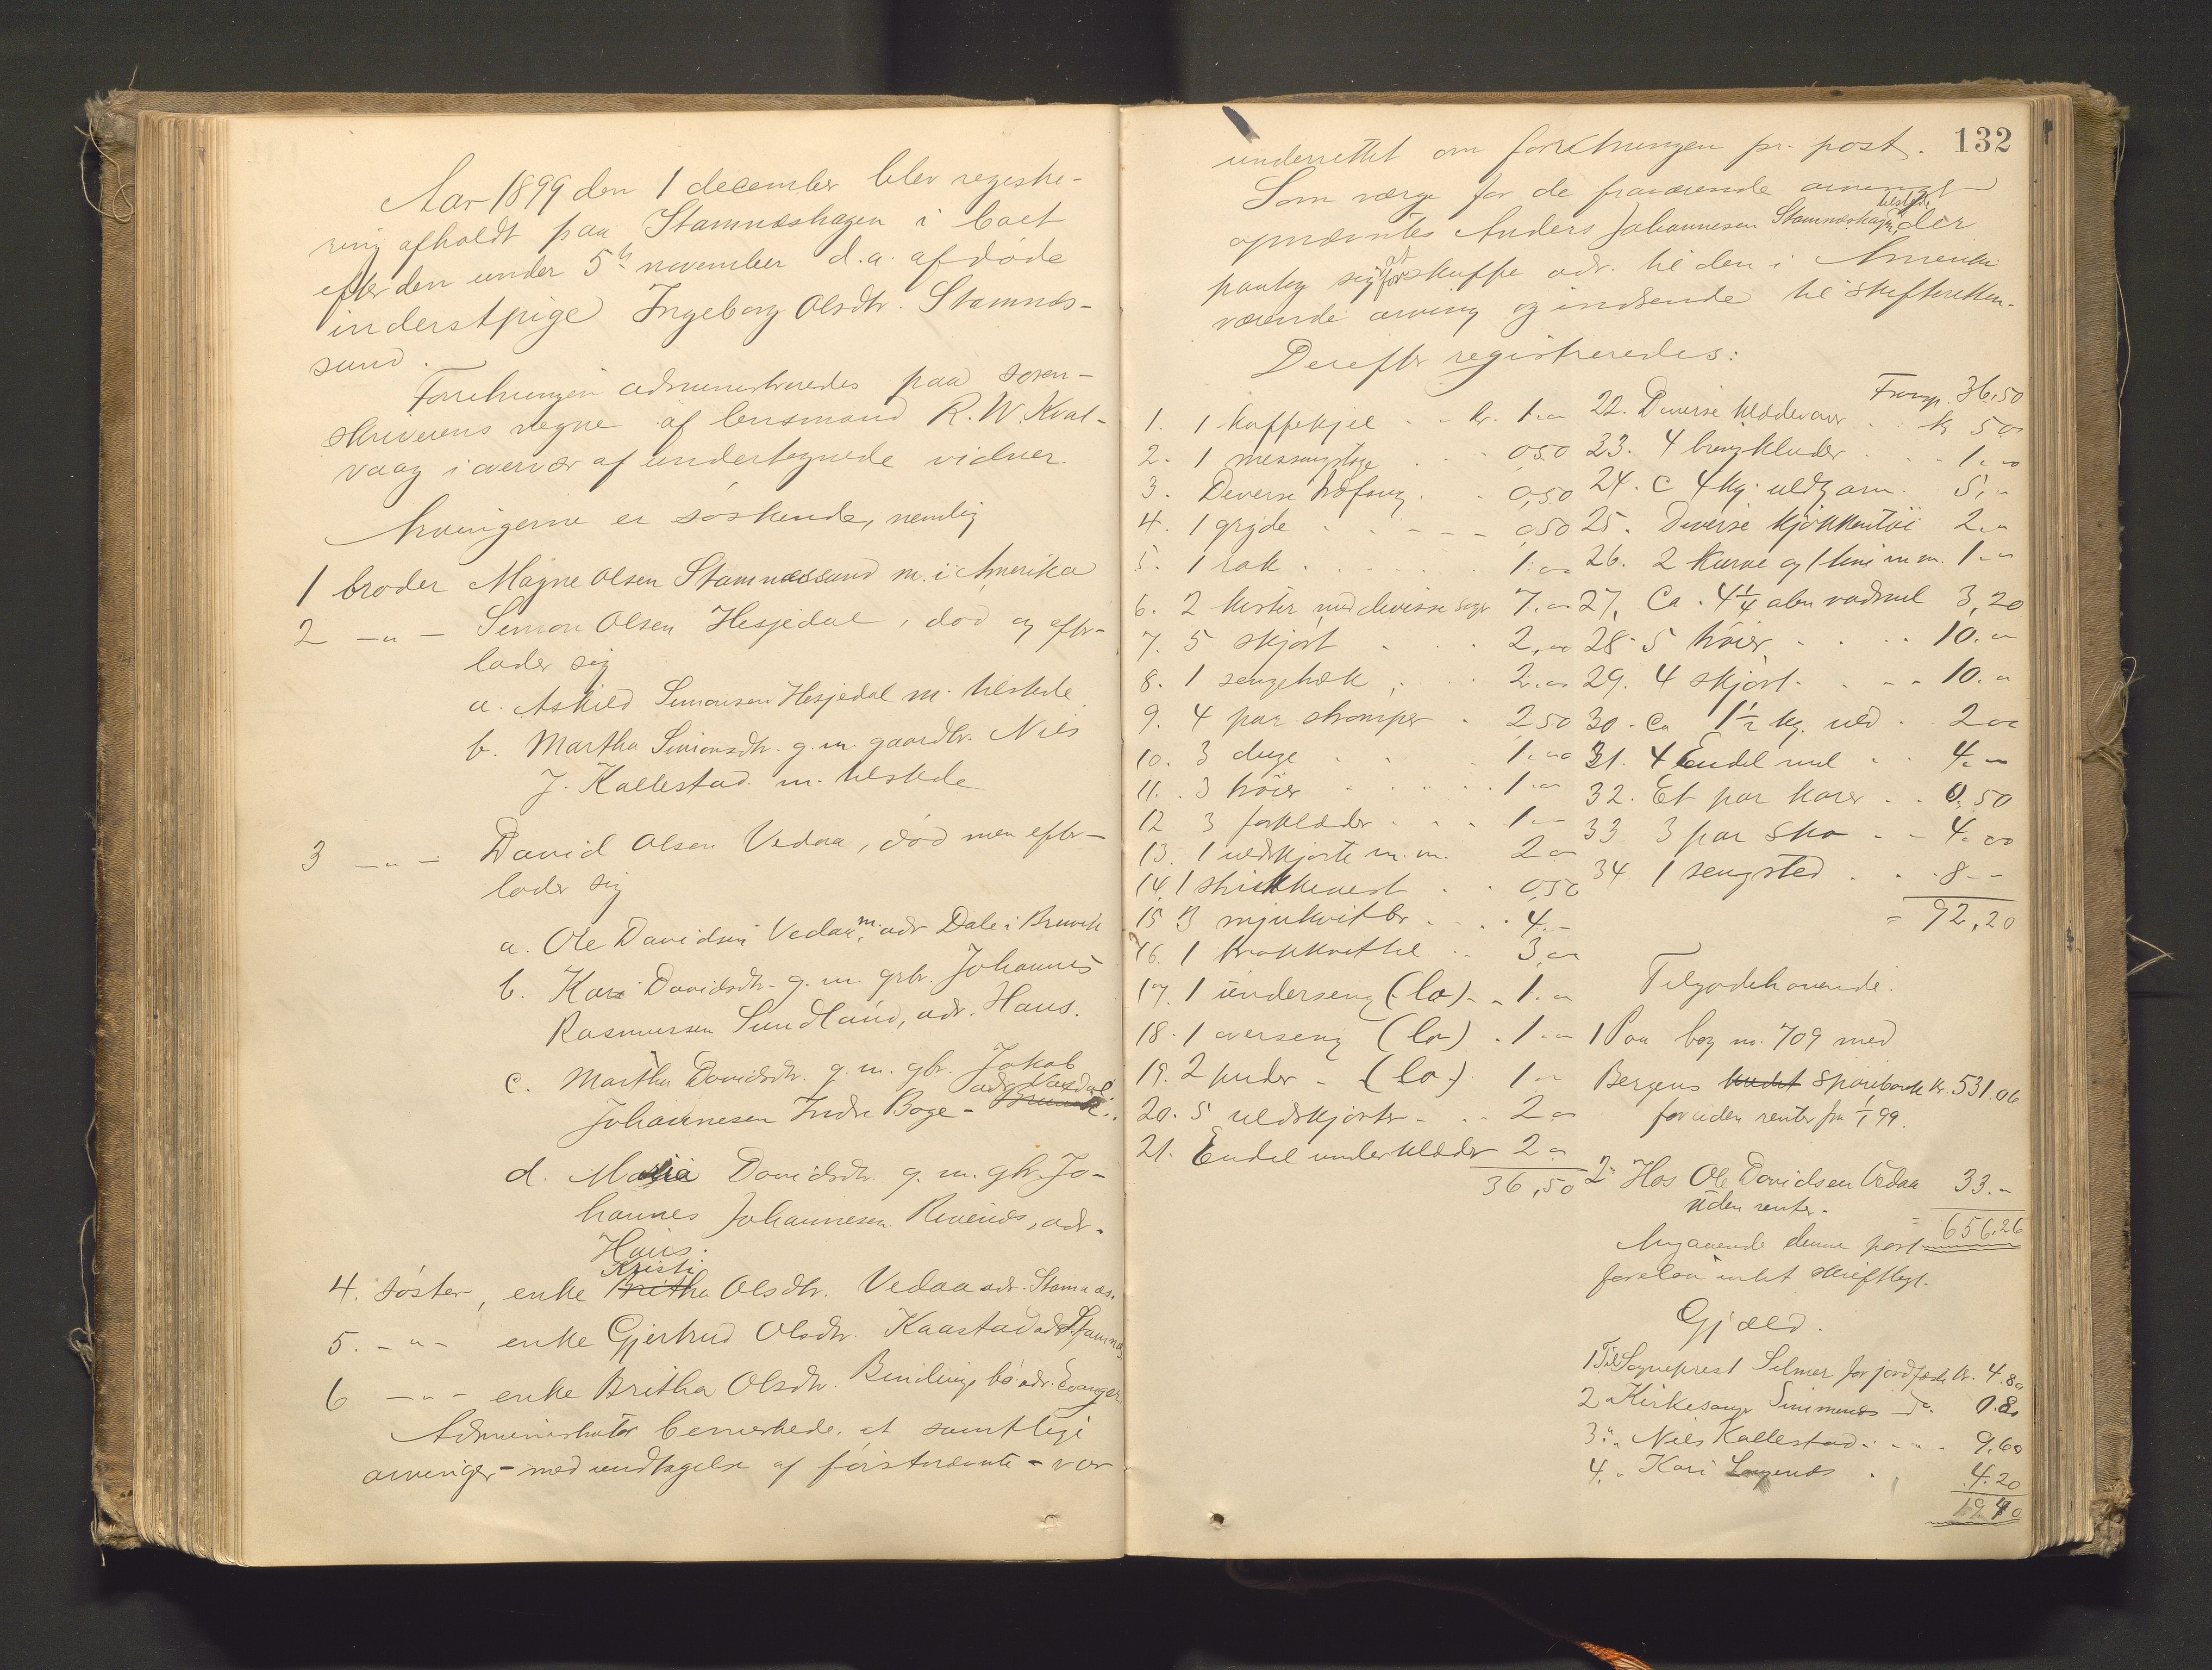 Aar 1899 den 1 december blev registre-
ring afholdt paa Stamneshagen i boet
efter den under 5te november d.a. afdøde
inderstpige Ingeborg Olsdtr. Stamnes-
sund.
Forretningen administreredes paa soren-
skriverens vegne af lensmand R. W. Kval-
vaag i overvær af undertegnede vidner.
Arvingerne er søskende, nemlig
1 broder Magne Olsen Stamnessund m. i Amerika
2 -"- Simon Olsen Hesjedal, død og efter-
lader sig
a. Askild Simonsen Hesjedal m. tilstede
b. Martha Simonsdtr. g.m. gaardbr. Nils
J. Kallestad m. tilstede
3 -"- David Olsen Vedaa, død men efter-
lader sig
a. Ole Davidsen Vedaa, m. adr Dale i Bruvik
b. Kari Davidsdtr. g.m. grbr. Johannes
Rasmussen Sundland, adr. Haus.
c. Martha Davidsdtr. g.m. gbr. Jakob
Johannesen Indre Boge - adr Vaxdal.
d. Maria Davidsdtr. g.m. gbr. Jo-
hannes Johannesen Revenes, adr.
Haus.
4. søster, enke Kristi Olsdtr. Vedaa adr. Stamnes.
5. -"- enke Gjertrud Olsdtr. Kaastad adr Stamnes
6 -"- enke Britha Olsdtr. Bindingsbø adr. Evanger.
Administrator bemerkede, at samtlige
arvinger - med undtagelse af førstnevnte - var
132
underrettet om forretningen pr. post.
Som værge for de fraværende arvinger
opnævntes Anders Johannesen Stamneshagen, tilstede der
paatog sig at forskaffe adr. til den i Amerika
værende arving og indsende til skifteretten.
Derefter registreredes:
1. 1 kaffekjel . . kr. 1.00
2. 1 messing . . . 0,50
3. Diverse træfang . . 0,50
4. 1 gryde . . . . 0,50
5. 1 rok . . . . 1.00
6. 2 kister med diverse sager 7.00
7. 5 skjört . . . 2,00
8. 1 sengetæk . . . 2.00
9. 4 par strømper . 2,50
10. 3 duge . . . 1.00
11. 3 trøier . . . . 1.00
12 3 forklæder . . . 1.-
13. 1 uldskjorte m.m. 2 00
14. 1 strikkevest . . 0,50
15 3 . . . 4.-
16. 1 . . 3,00
17. 1 underseng (lo) - 1.00
18. 1 overseng (lo) . 1.-
19. 2 puder - (lo) 1 00
20. 5 uldskjorter . . 2 00
21. Endel underklæder 2 00
36,50
Transp. 36,50
22. Diverse klædevarer . . kr 5 00
23. 4 bringkluder . . . 1.00
24. c 4 kg. uldgarn . 5,00
25. Diverse kjøkkentøi 2.00
26. 2 kurve og 1 tine m.m. 1.00
27. Ca. 4 1/4 alen vadmel 3,20
28. 5 trøier . . . 10.00
29. 4 skjört . . . 10.00
30. Ca 1 1/2 kg. uld . 2 00
31. 4 Endel mel . . 4.-
32. Et par karer . . 0,50
33 3 par sko . . 4.00
34 1 sengsted . . . 8.-
= 92,20
Tilgodehavende.
1 Paa bog no. 709 med
Bergens Sparebank kr. 531.06
foruden renter fra 1/1 99.
2 Hos Ole Davidsen Vedaa 33.-
uden renter.
= 656,26
Angaaende denne post
forelaa intet skriftligt.
Gjæld.
1 Til Sogneprest Selmer for jordfæstelse kr. 4.80
2 " Kirkesanger Simmenes do. 0.80
3. " Nils Kallestad . . . . 9,60
4. " Kari . 4.20
19.40